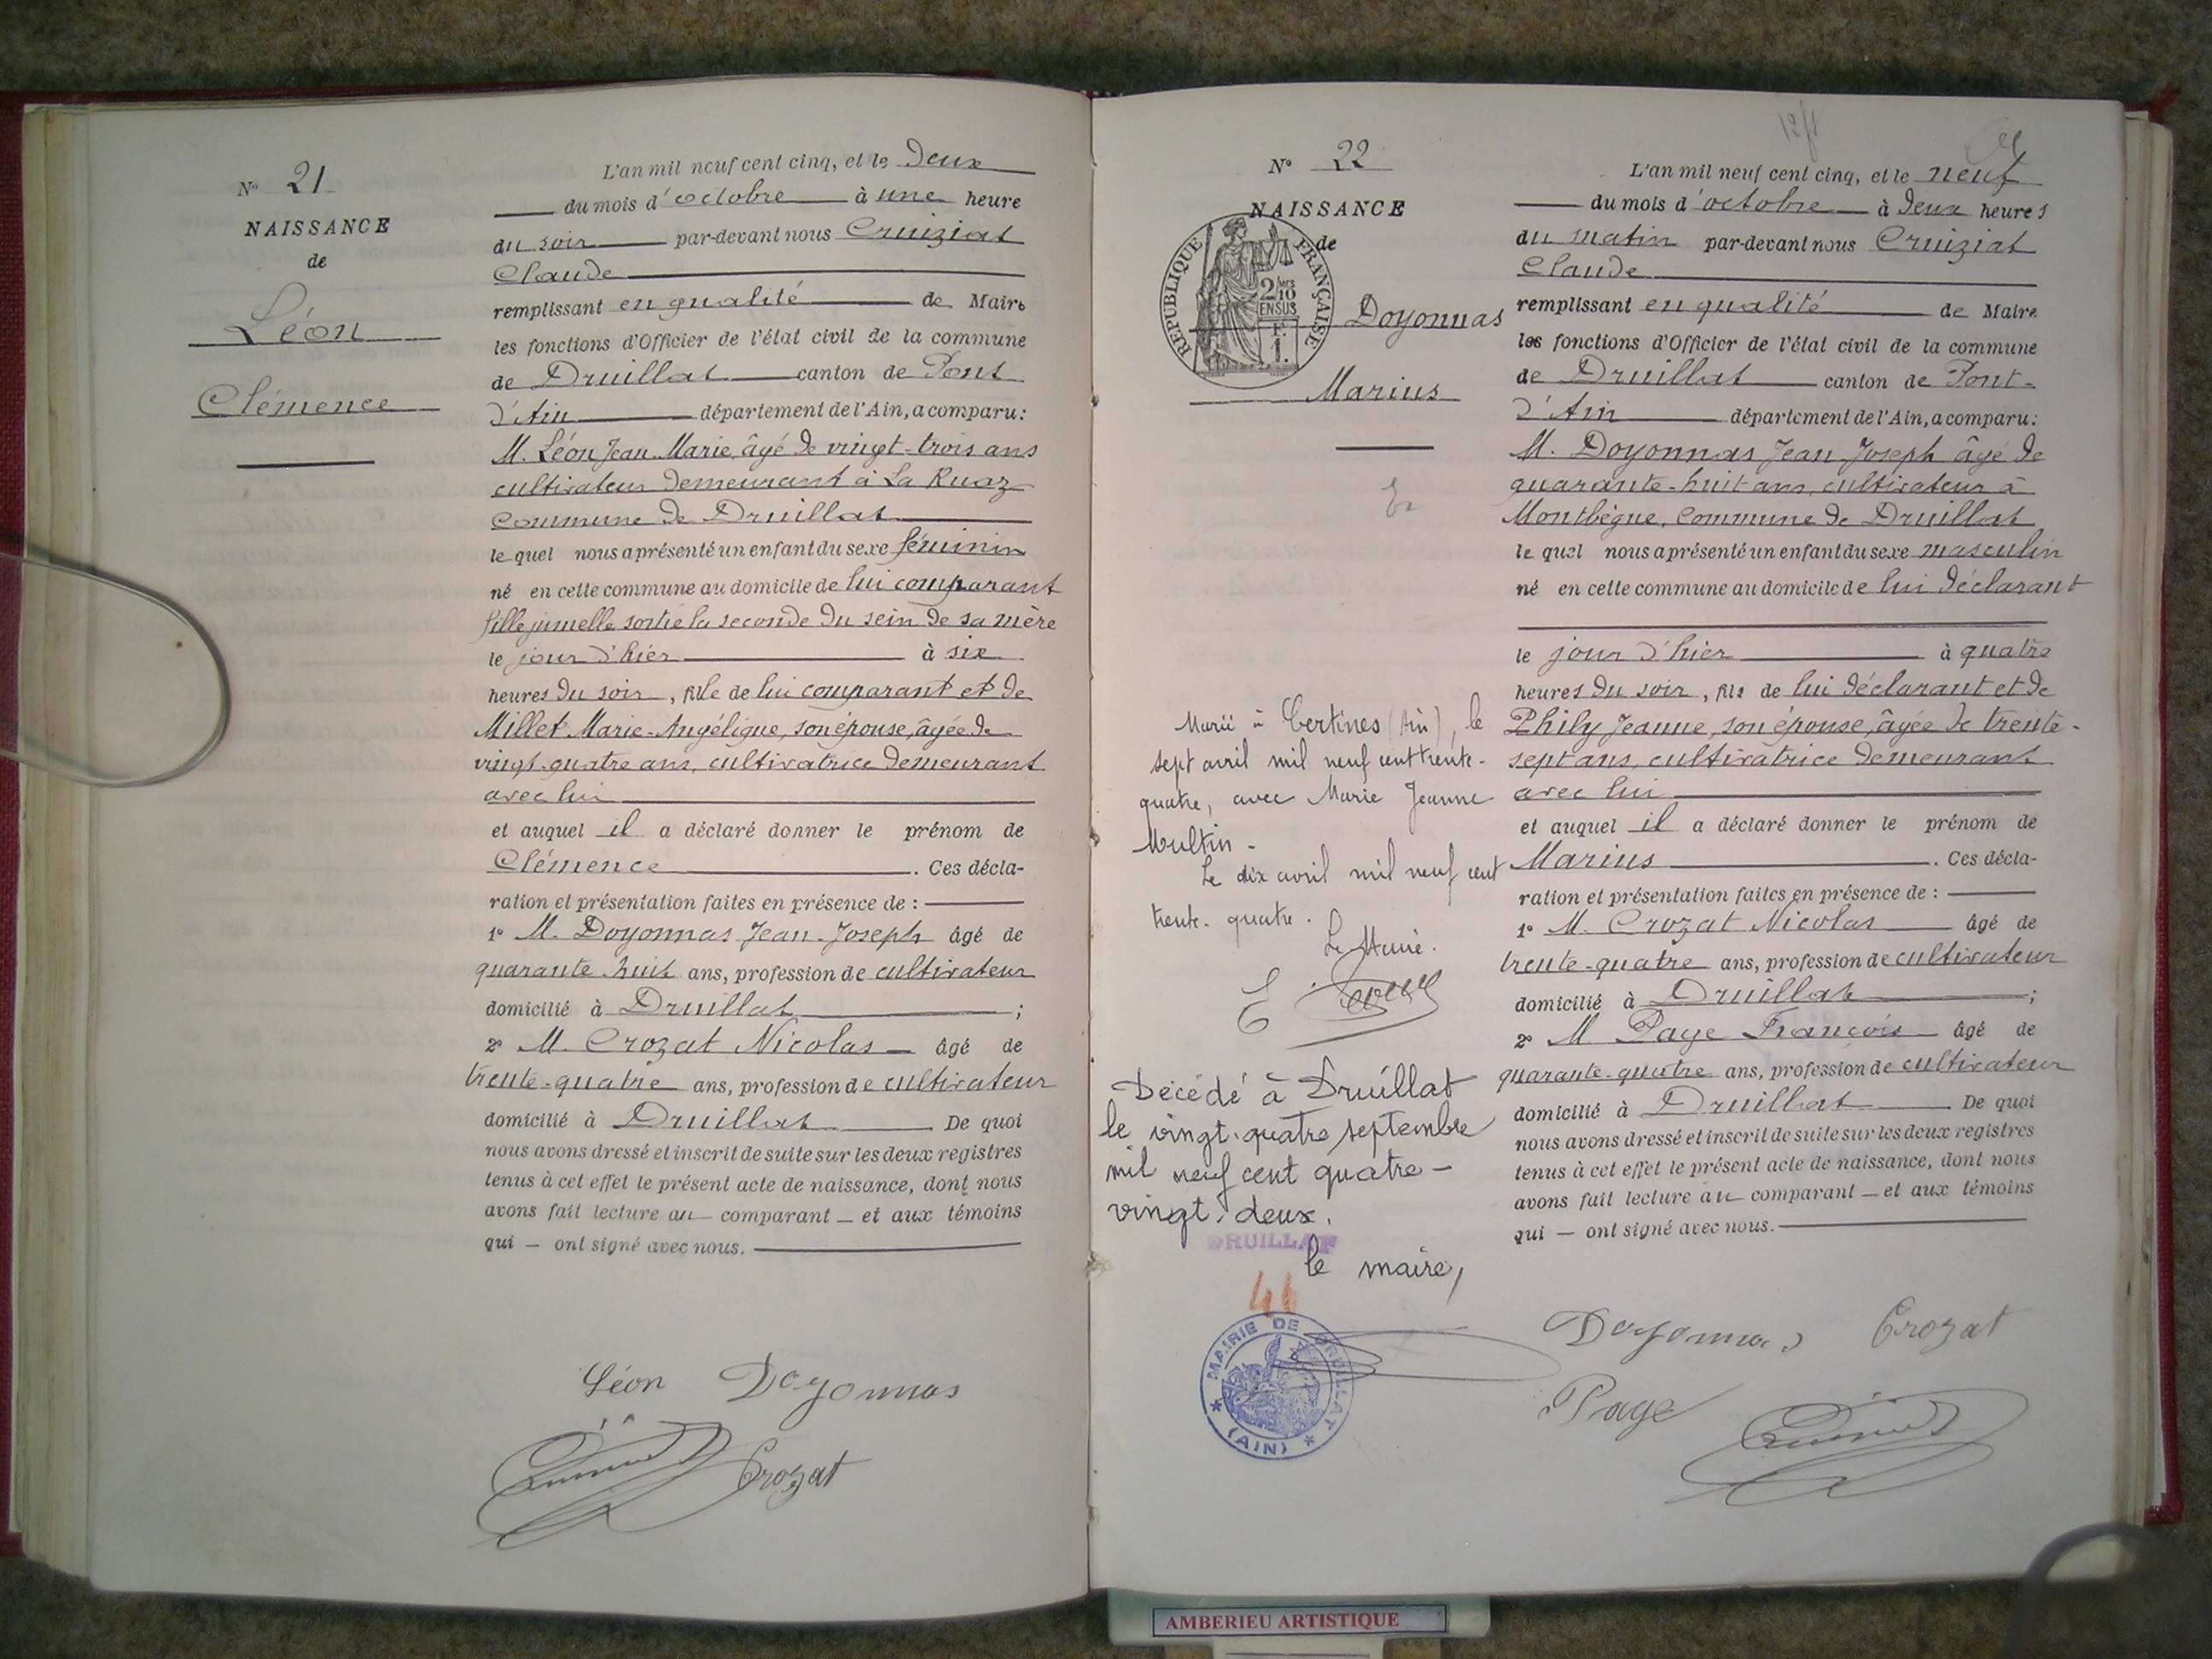 N° 21
NAISSANCE
de
Léon
Clémence
L'an mil neuf cent cinq, et le deux
du mois d'octobre à une heure
du soir par-devant nous Cruiziat
Claude
remplissant en qualité de Maire
les fonctions d'Officier de l'état civil de la commune
de Druillat canton de Pont
d'Ain département de l'Ain, a comparu:
M. Léon Jean Marie, âgé de vingt-trois ans
cultivateur demeurant à La Ruaz
Commune de Druillat
le quel nous a présenté un enfant du sexe féminin
né en cette commune au domicile de lui comparant
fille jumelle sortie la seconde du sein de sa mère
le jour d'hier à six
heures du soir, fille de lui comparant et de
Millet Marie-Angélique, son épouse, âgée de
vingt-quatre ans, cultivatrice demeurant
avec lui
et auquel il a déclaré donner le prénom de
Clémence. Ces décla-
ration et présentation faites en présence de :
1° M. Doyonnas Jean-Joseph âgé de
quarante-huit ans, profession de cultivateur
domicilié à Druillat ;
2° M. Crozat Nicolas âgé de
trente-quatre ans, profession de cultivateur
domicilié à Druillat De quoi
nous avons dressé et inscrit de suite sur les deux registres
tenus à cet effet le présent acte de naissance, dont nous
avons fait lecture au comparant — et aux témoins
qui — ont signé avec nous.
Léon Doyonnas
Crozat
N° 22
NAISSANCE
de
REPUBLIQUE FRANÇAISE
2/10
EN SUS
1 F.
Doyonnas
Marius
Marié à Certines (Ain), le
sept avril mil neuf cent trente-
quatre, avec Marie Jeanne
Multin -
Le dix avril mil neuf cent
trente-quatre.
Le Maire.
Décédé à Druillat
le vingt-quatre septembre
mil neuf cent quatre-
vingt-deux.
DRUILLAT
le maire,
MAIRIE DE DRUILLAT
(AIN)
L'an mil neuf cent cinq, et le neuf
du mois d'octobre à deux heures
du matin par-devant nous Cruiziat
Claude
remplissant en qualité de Maire
les fonctions d'Officier de l'état civil de la commune
de Druillat canton de Pont-
d'Ain département de l'Ain, a comparu:
M. Doyonnas Jean Joseph âgé de
quarante-huit ans, cultivateur à
Montbègue, commune de Druillat
le quel nous a présenté un enfant du sexe masculin
né en cette commune au domicile de lui déclarant
le jour d'hier à quatre
heures du soir, fils de lui déclarant et de
Phily Jeanne, son épouse, âgée de trente-
sept ans, cultivatrice demeurant
avec lui
et auquel il a déclaré donner le prénom de
Marius. Ces décla-
ration et présentation faites en présence de :
1° M. Crozat Nicolas âgé de
trente-quatre ans, profession de cultivateur
domicilié à Druillat ;
2° M Paye François âgé de
quarante-quatre ans, profession de cultivateur
domicilié à Druillat De quoi
nous avons dressé et inscrit de suite sur les deux registres
tenus à cet effet le présent acte de naissance, dont nous
avons fait lecture au comparant — et aux témoins
qui — ont signé avec nous.
Doyonnas Crozat
Paye
AMBERIEU ARTISTIQUE